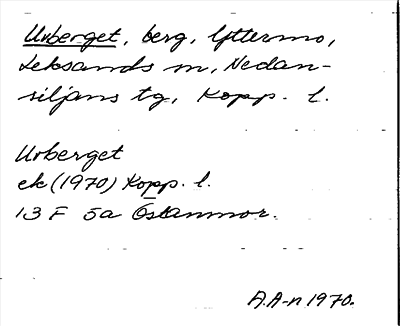 Uvberget, berg, Yttermo,
Leksands sn, Nedan-
siljans tg, Kopp. l.
Uvberget
ek (1970) Kopp. l.
13 F 5a Östanmor.
A.A-n 1970.